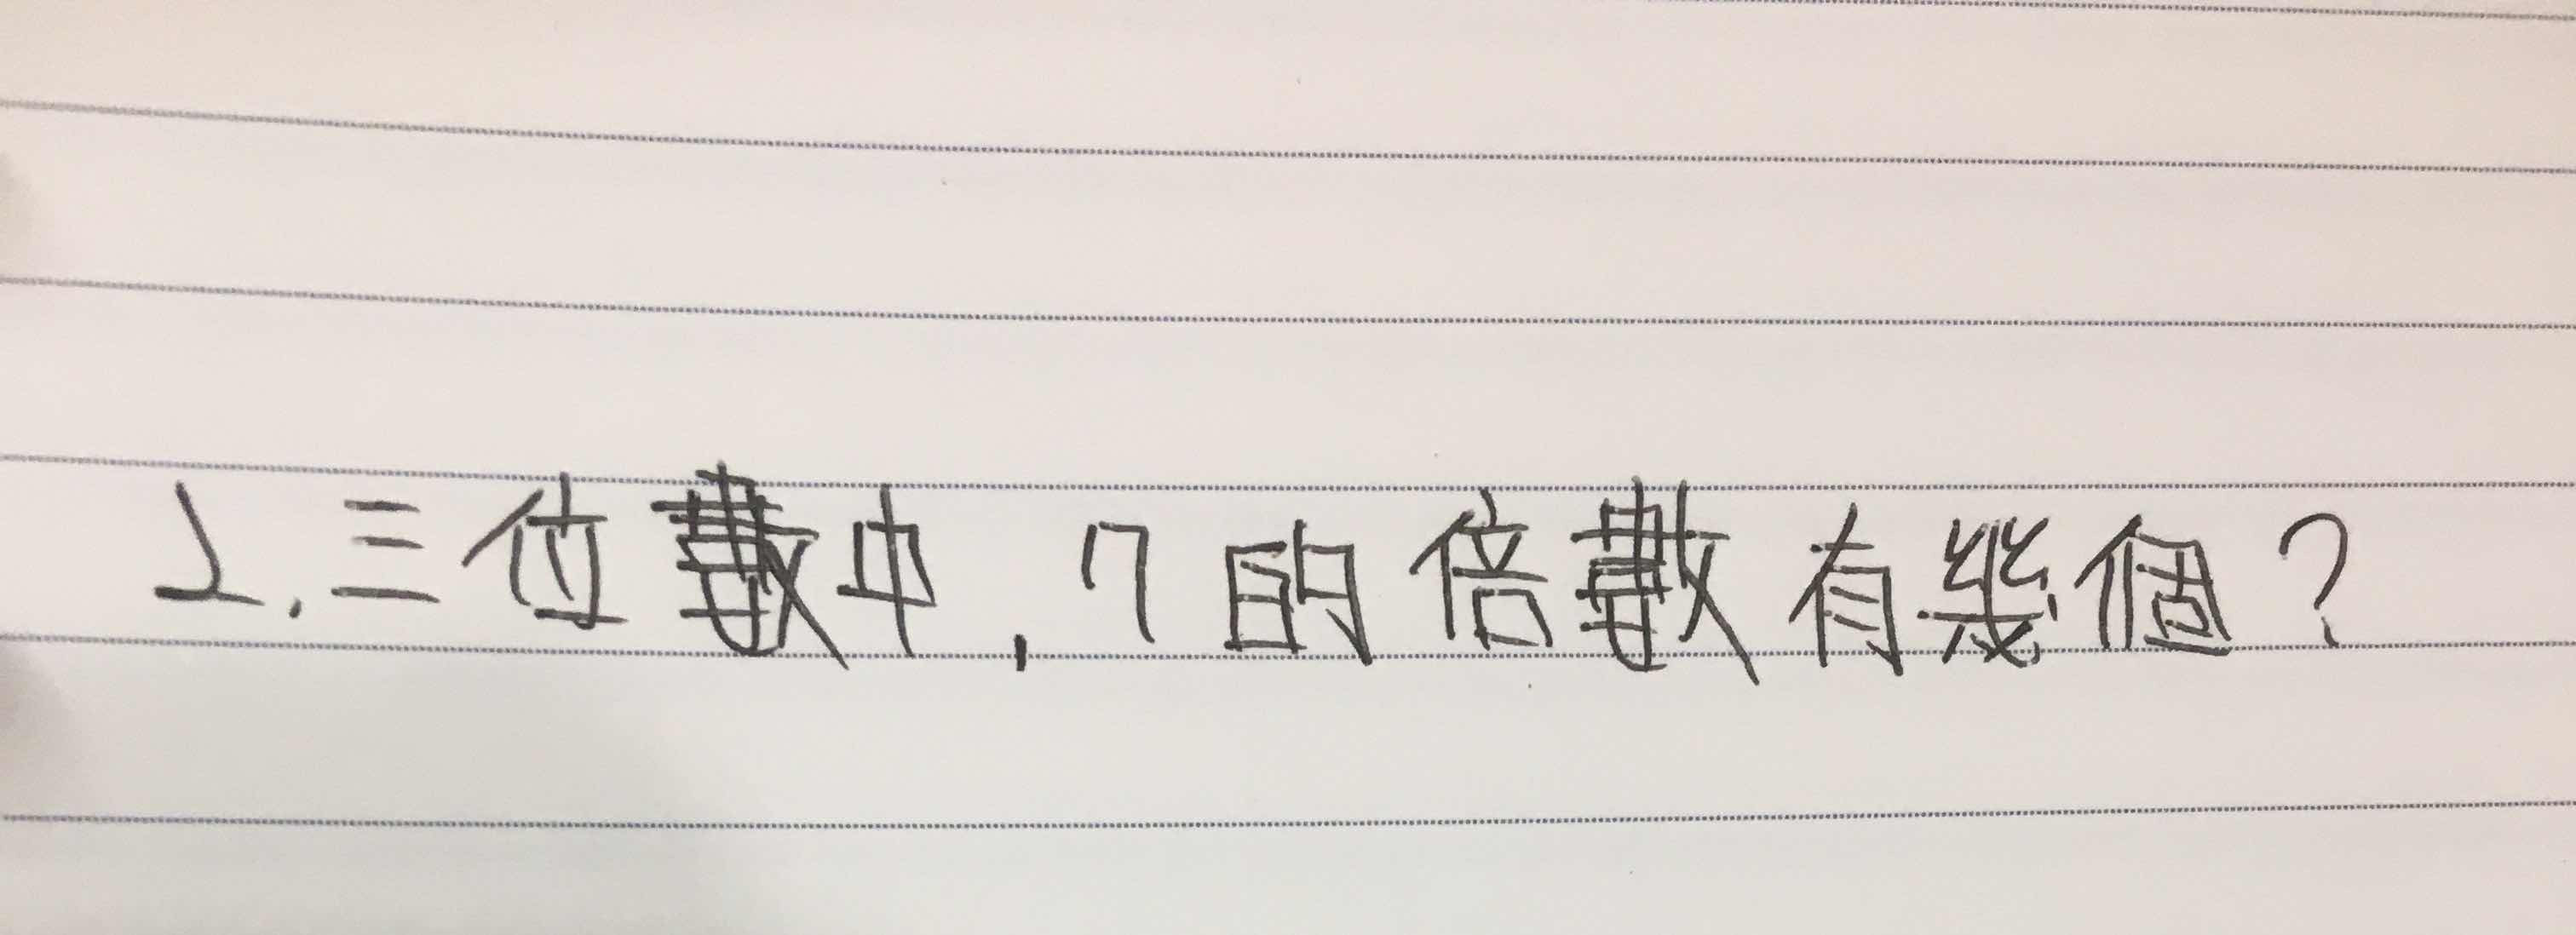 2.三位數中,7的倍數有幾個?